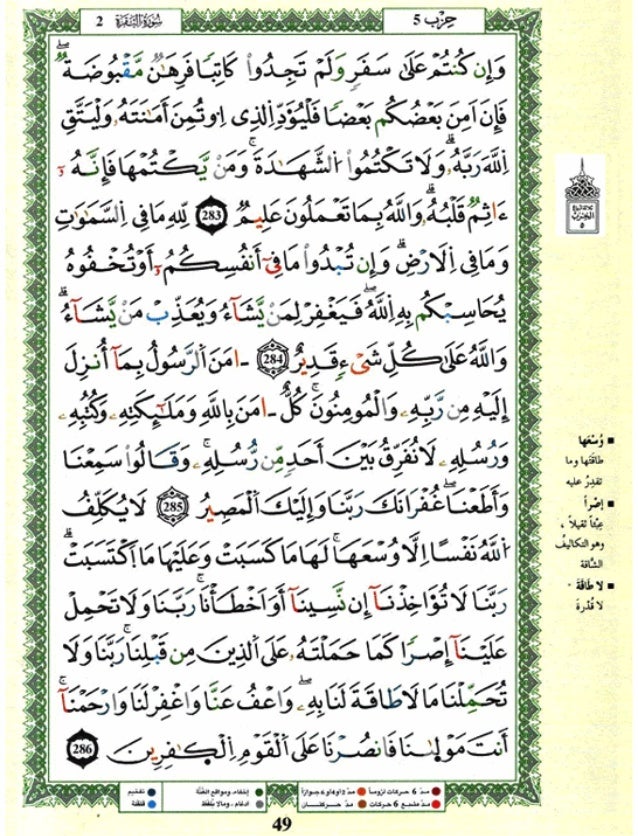 2 سُورَةُ البَقَرَة
حِزْب 5
وَإِن كُنتُمْ عَلَىٰ سَفَرٍ وَلَمْ تَجِدُواْ كَاتِبًا فَرِهَٰنٌ مَّقْبُوضَةٌۖ
فَإِنَ اَمِنَ بَعْضُكُم بَعْضًا فَلْيُؤَدِّ اِلذِى اِوتُمِنَ أَمَٰنَتَهُۥ وَلْيَتَّقِ
اِللَّهَ رَبَّهُۥۖ وَلَا تَكْتُمُواْ اُلشَّهَٰدَةَۖ وَمَنْ يَّكْتُمْهَا فَإِنَّهُۥٓ
ءَاثِمٌ قَلْبُهُۥۖ وَاللَّهُ بِمَا تَعْمَلُونَ عَلِيمٌ 283 لِلهِ مَا فِى اِلسَّمَٰوَٰتِ
وَمَا فِى اِلَارْضِۖ وَإِن تُبْدُواْ مَا فِىٓ أَنفُسِكُمُۥٓ أَوْ تُخْفُوهُ
يُحَاسِبْكُم بِهِ اِللَّهُۖ فَيَغْفِرْ لِمَنْ يَّشَآءُ وَيُعَذِّب مَنْ يَّشَآءُۖ
وَاللَّهُ عَلَىٰ كُلِّ شَىْءٍ قَدِيرٌ 284 ـَامَنَ اَلرَّسُولُ بِمَآ أُنزِلَ
إِلَيْهِ مِن رَّبِّهِۦ وَالْمُومِنُونَۖ كُلٌّ ـَامَنَ بِاللَّهِ وَمَلَٰٓئِكَتِهِۦ وَكُتُبِهِۦ
وَرُسُلِهِۦۖ لَا نُفَرِّقُ بَيْنَ أَحَدٍ مِّن رُّسُلِهِۦۖ وَقَالُواْ سَمِعْنَا
وَأَطَعْنَاۖ غُفْرَانَكَ رَبَّنَا وَإِلَيْكَ اَلْمَصِيرُ 285 لَا يُكَلِّفُ
اُللَّهُ نَفْسًا اِلَّا وُسْعَهَاۖ لَهَا مَا كَسَبَتْ وَعَلَيْهَا مَا اَكْتَسَبَتْۖ
رَبَّنَا لَا تُوَاخِذْنَآ إِن نَّسِينَآ أَوَ اَخْطَأْنَاۖ رَبَّنَا وَلَا تَحْمِلْ
عَلَيْنَآ إِصْرًا كَمَا حَمَلْتَهُۥ عَلَى اَلذِينَ مِن قَبْلِنَاۖ رَبَّنَا وَلَا
تُحَمِّلْنَا مَا لَا طَاقَةَ لَنَا بِهِۦۖ وَاعْفُ عَنَّا وَاغْفِرْ لَنَا وَارْحَمْنَآۖ
أَنتَ مَوْلَىٰنَا فَانصُرْنَا عَلَى اَلْقَوْمِ اِلْكَٰفِرِينَ 286
الحزب
٥
■ وُسْعَها
طاقَتَها وما
تقدِرُ عليه
■ إصْراً
عِبْئاً ثقيلاً ،
وهو التكاليفُ
الشّاقة
■ لا طَاقَةَ
لا قُدْرةَ
مدّ 6 حركات لزوماً
مدّ 2 أو 4 أو 6 جوازاً
إخفاء، ومواقع الغُنَّة
تفخيم
مدّ مشبع 6 حركات
مدّ حركتـــان
ادغام ، ومالا يُلفَظ
قلقلة
49